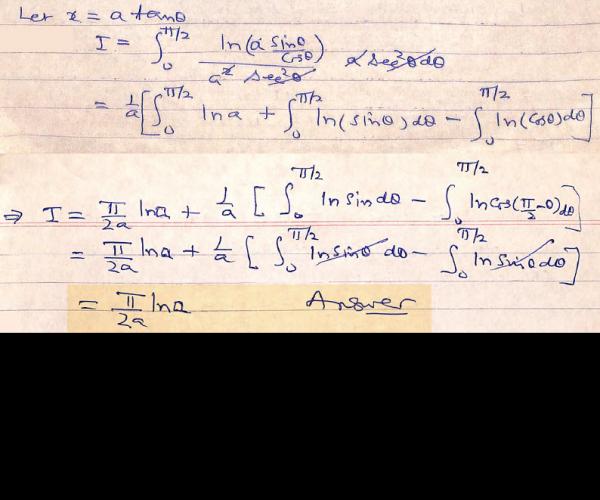 Let x = a tanθ
I = ∫₀^{π/2} ln(a sinθ/cosθ) / (a² sec²θ) a sec²θ dθ
= 1/a [∫₀^{π/2} ln a + ∫₀^{π/2} ln(sinθ) dθ − ∫₀^{π/2} ln(cosθ) dθ]
⇒ I = π/2a ln a + 1/a [∫₀^{π/2} ln sin dθ − ∫₀^{π/2} ln cos(π/2−θ) dθ]
= π/2a ln a + 1/a [∫₀^{π/2} ln sinθ dθ − ∫₀^{π/2} ln sinθ dθ]
= π/2a ln a Answer